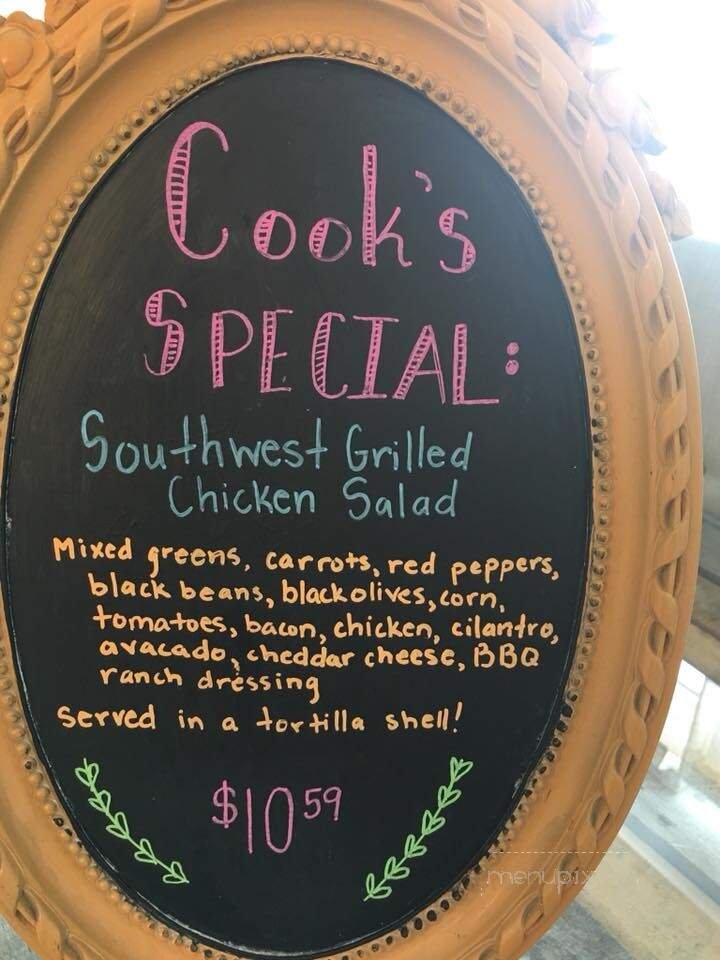 Cook's
SPECIAL:
Southwest Grilled
Chicken Salad
Mixed greens, carrots, red peppers,
black beans, black olives, corn,
tomatoes, bacon, chicken, cilantro,
avacado, cheddar cheese, BBQ
ranch dressing
served in a tortilla shell!
$10 59
menupix